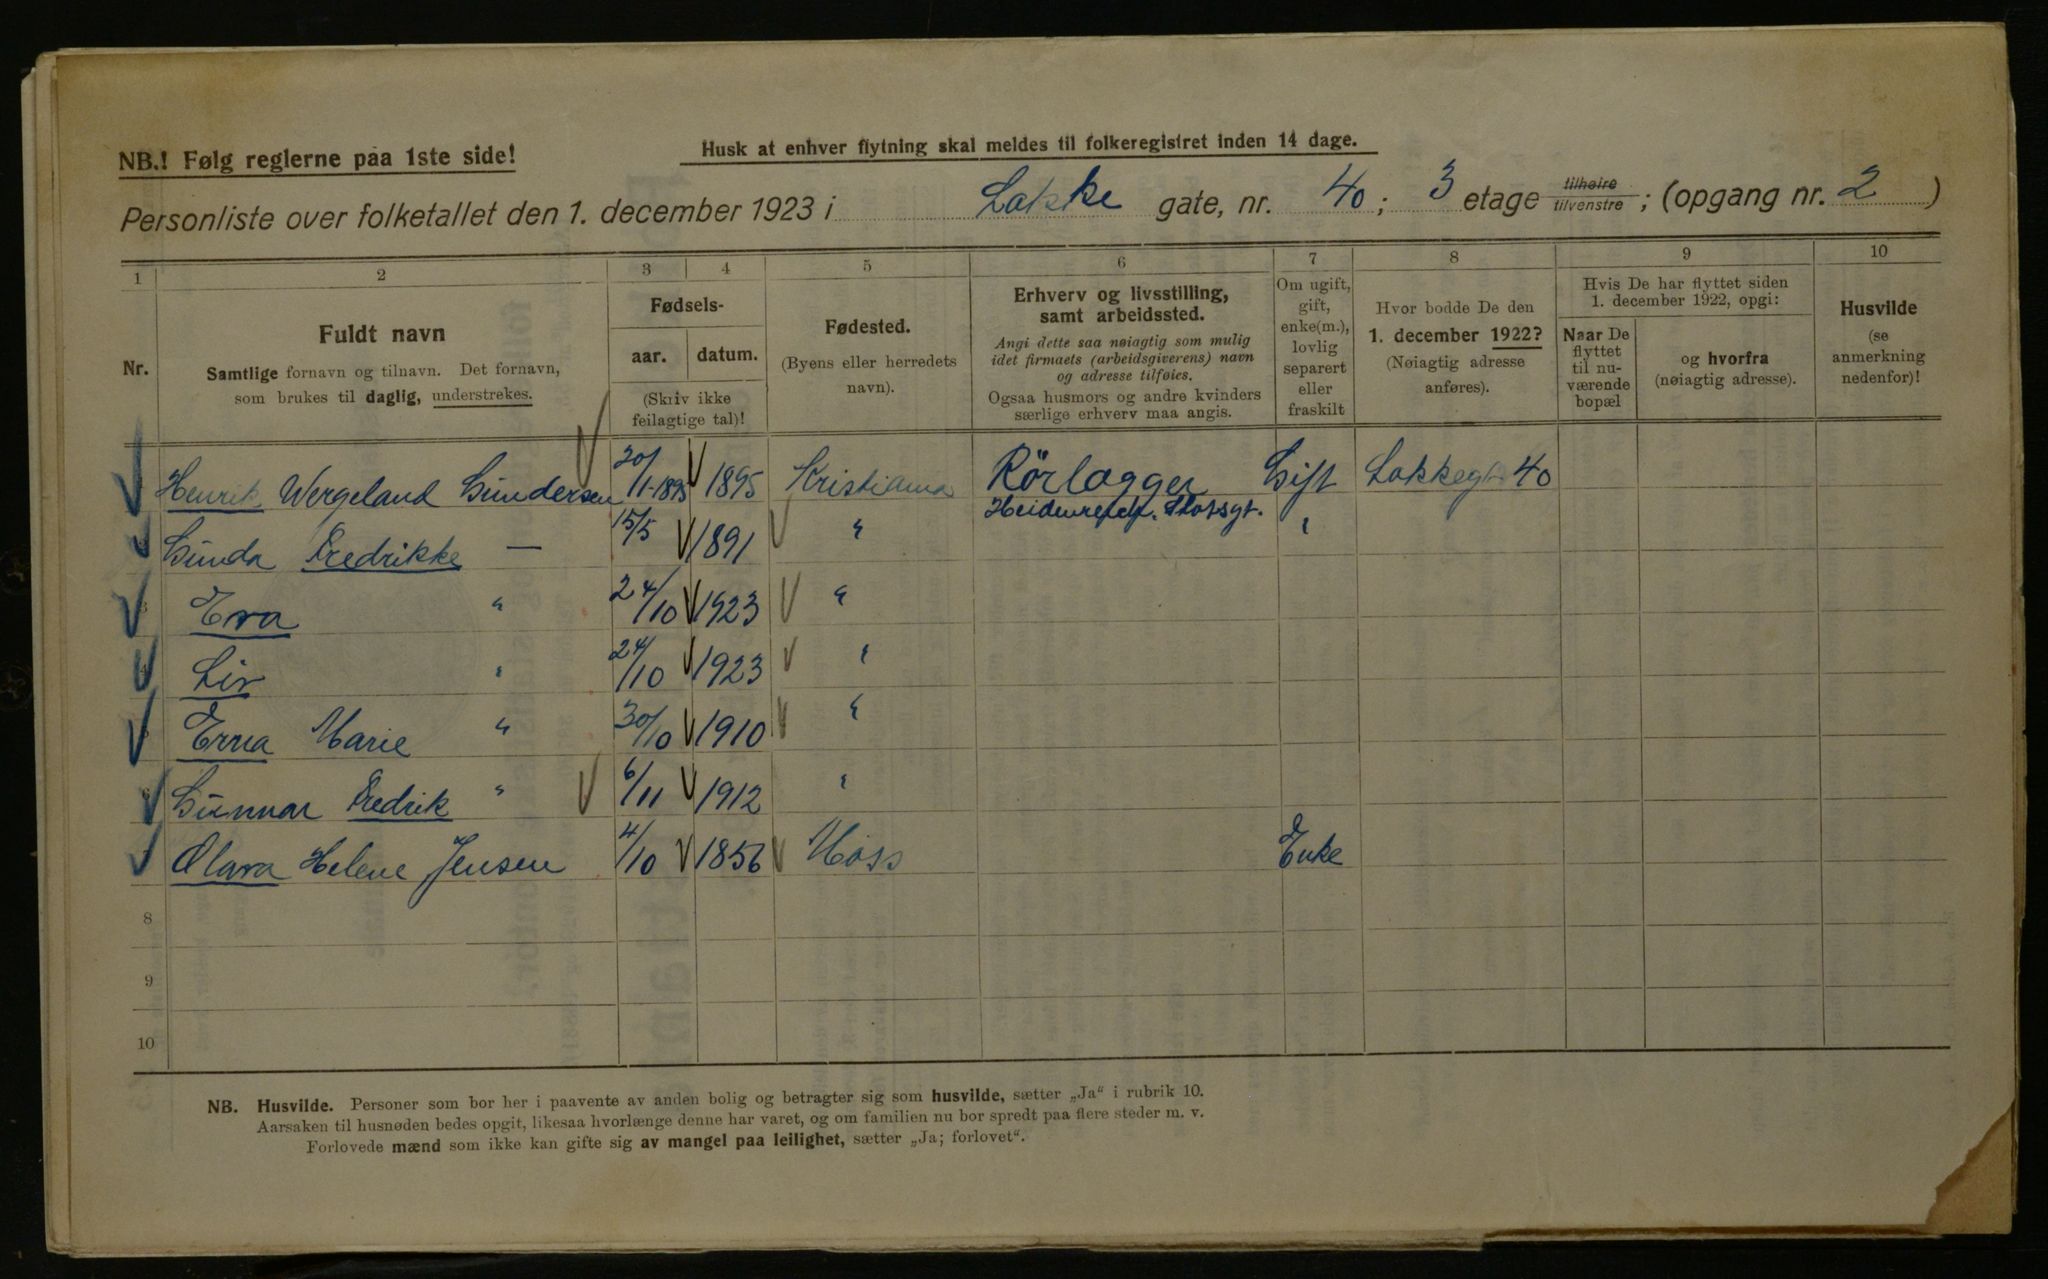 NB.! Følg reglerne paa 1ste side!
Husk at enhver flytning skal meldes til folkeregistret inden 14 dage.
Personliste over folketallet den 1. december 1923 i Lakke gate, nr. 40; 3 etage tilhøire/tilvenstre; (opgang nr. 2)
1 2 3 4 5 6 7 8 9 10
Nr.
Fuldt navn
Samtlige fornavn og tilnavn. Det fornavn,
som brukes til daglig, understrekes.
Fødsels-
aar. datum.
(Skriv ikke
feilagtige tal)!
Fødested.
(Byens eller herredets
navn).
Erhverv og livsstilling,
samt arbeidssted.
Angi dette saa nøiagtig som mulig
idet firmaets (arbeidsgiverens) navn
og adresse tilføies.
Ogsaa husmors og andre kvinders
særlige erhverv maa angis.
Om ugift,
gift,
enke(m.),
lovlig
separert
eller
fraskilt
Hvor bodde De den
1. december 1922?
(Nøiagtig adresse
anføres).
Hvis De har flyttet siden
1. december 1922, opgi:
Naar De
flyttet
til nu-
værende
bopæl
og hvorfra
(nøiagtig adresse).
Husvilde
(se
anmerkning
nedenfor)!
Henrik Wergeland Gundersen 20/11-1895 1895 Kristiania Rörlægger Gift Lakkegt. 40
Heidenreich. Slotsgt.
Gunda Fredrikke — 15/5 1891 " "
3 Eva " 24/10 1923 "
4 Liv " 24/10 1923 "
Erna Marie " 30/10 1910 "
6 Gunnar Fredrik " 6/11 1912 "
Olava Helene Jensen 4/10 1856 Moss Enke
8
9
10
NB. Husvilde. Personer som bor her i paavente av anden bolig og betragter sig som husvilde, sætter „Ja“ i rubrik 10.
Aarsaken til husnøden bedes opgit, likesaa hvorlænge denne har varet, og om familien nu bor spredt paa flere steder m. v.
Forlovede mænd som ikke kan gifte sig av mangel paa leilighet, sætter „Ja; forlovet“.